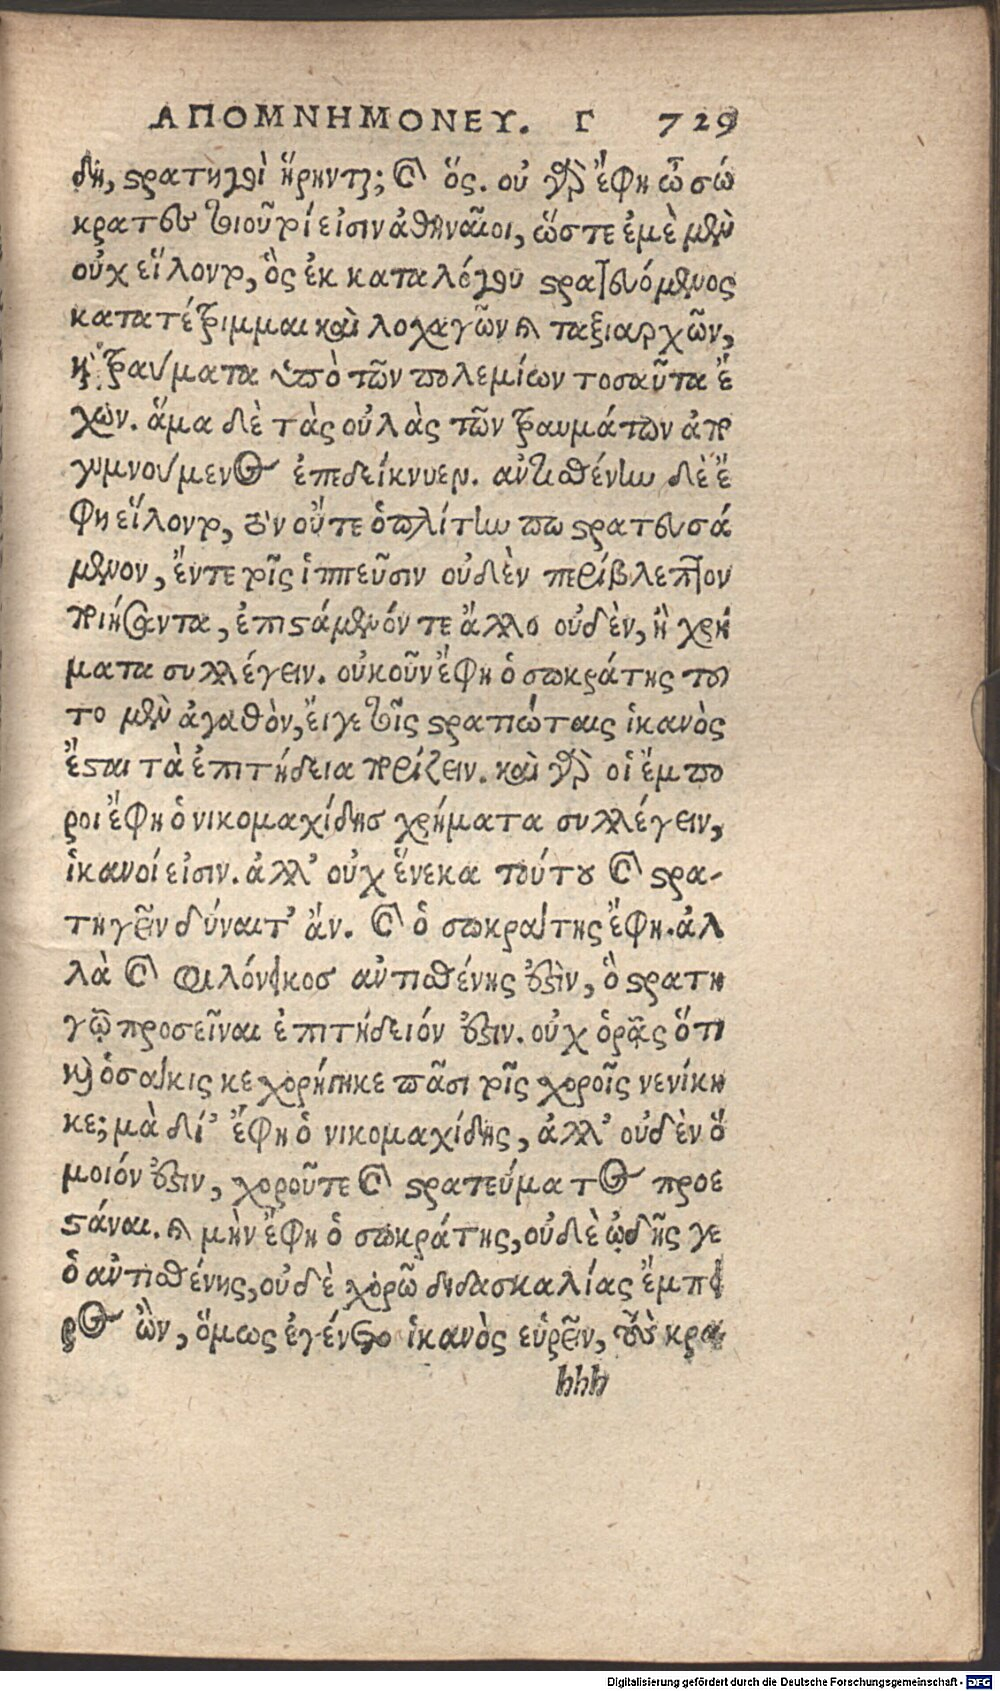 ΑΠΟΜΝΗΜΟΝΕΥ. Γ 729
δη, στρατηγοὶ ᾕρηνται; καὶ ὅς. οὐ γὰρ ἔφη ὦ σώ
κρατες τοιοῦτοί εἰσιν ἀθηναῖοι, ὥστε ἐμὲ μὲν
οὐχ εἵλοντο, ὃς ἐκ καταλόγου στρατευόμενος
κατατέτριμμαι καὶ λοχαγῶν καὶ ταξιαρχῶν,
καὶ τραύματα ὑπὸ τῶν πολεμίων τοσαῦτα ἔ
χων. ἅμα δὲ τὰς οὐλὰς τῶν τραυμάτων ἀπο
γυμνούμενος ἐπεδείκνυεν. ἀντισθένην δὲ ἔ
φη εἵλοντο, τὸν οὔτε ὁπλίτην πω στρατευσά
μενον, ἔν τε τοῖς ἱππεῦσιν οὐδὲν περίβλεπτον
ποιήσαντα, ἐπιστάμενόν τε ἄλλο οὐδὲν, ἢ χρή
ματα συλλέγειν. οὐκοῦν ἔφη ὁ σωκράτης τοῦ
το μὲν ἀγαθὸν, εἴγε τοῖς στρατιώταις ἱκανὸς
ἔσται τὰ ἐπιτήδεια πορίζειν. καὶ γὰρ οἱ ἔμπο
ροι ἔφη ὁ νικομαχίδης χρήματα συλλέγειν,
ἱκανοί εἰσιν. ἀλλ’ οὐχ ἕνεκα τούτου καὶ στρα-
τηγεῖν δύναιτ’ ἄν. καὶ ὁ σωκράτης ἔφη. ἀλ
λὰ καὶ φιλόνεικος ἀντισθένης ἐστὶν, ὃ στρατη
γῷ προσεῖναι ἐπιτήδειόν ἐστιν. οὐχ ὁρᾷς ὅτι
καὶ ὁσάκις κεχορήγηκε πᾶσι τοῖς χοροῖς νενίκη
κε; μὰ δί’ ἔφη ὁ νικομαχίδης, ἀλλ’ οὐδὲν ὅ
μοιόν ἐστιν, χοροῦ τε καὶ στρατεύματος προε
στάναι. καὶ μὴν ἔφη ὁ σωκράτης, οὐδὲ ᾠδῆς γε
ὁ ἀντισθένης, οὐδὲ χορῶ διδασκαλίας ἔμπει
ρος ὢν, ὅμως ἐγένετο ἱκανὸς εὑρεῖν, τοὺς κρα
hhh
Digitalisierung gefördert durch die Deutsche Forschungsgemeinschaft - DFG